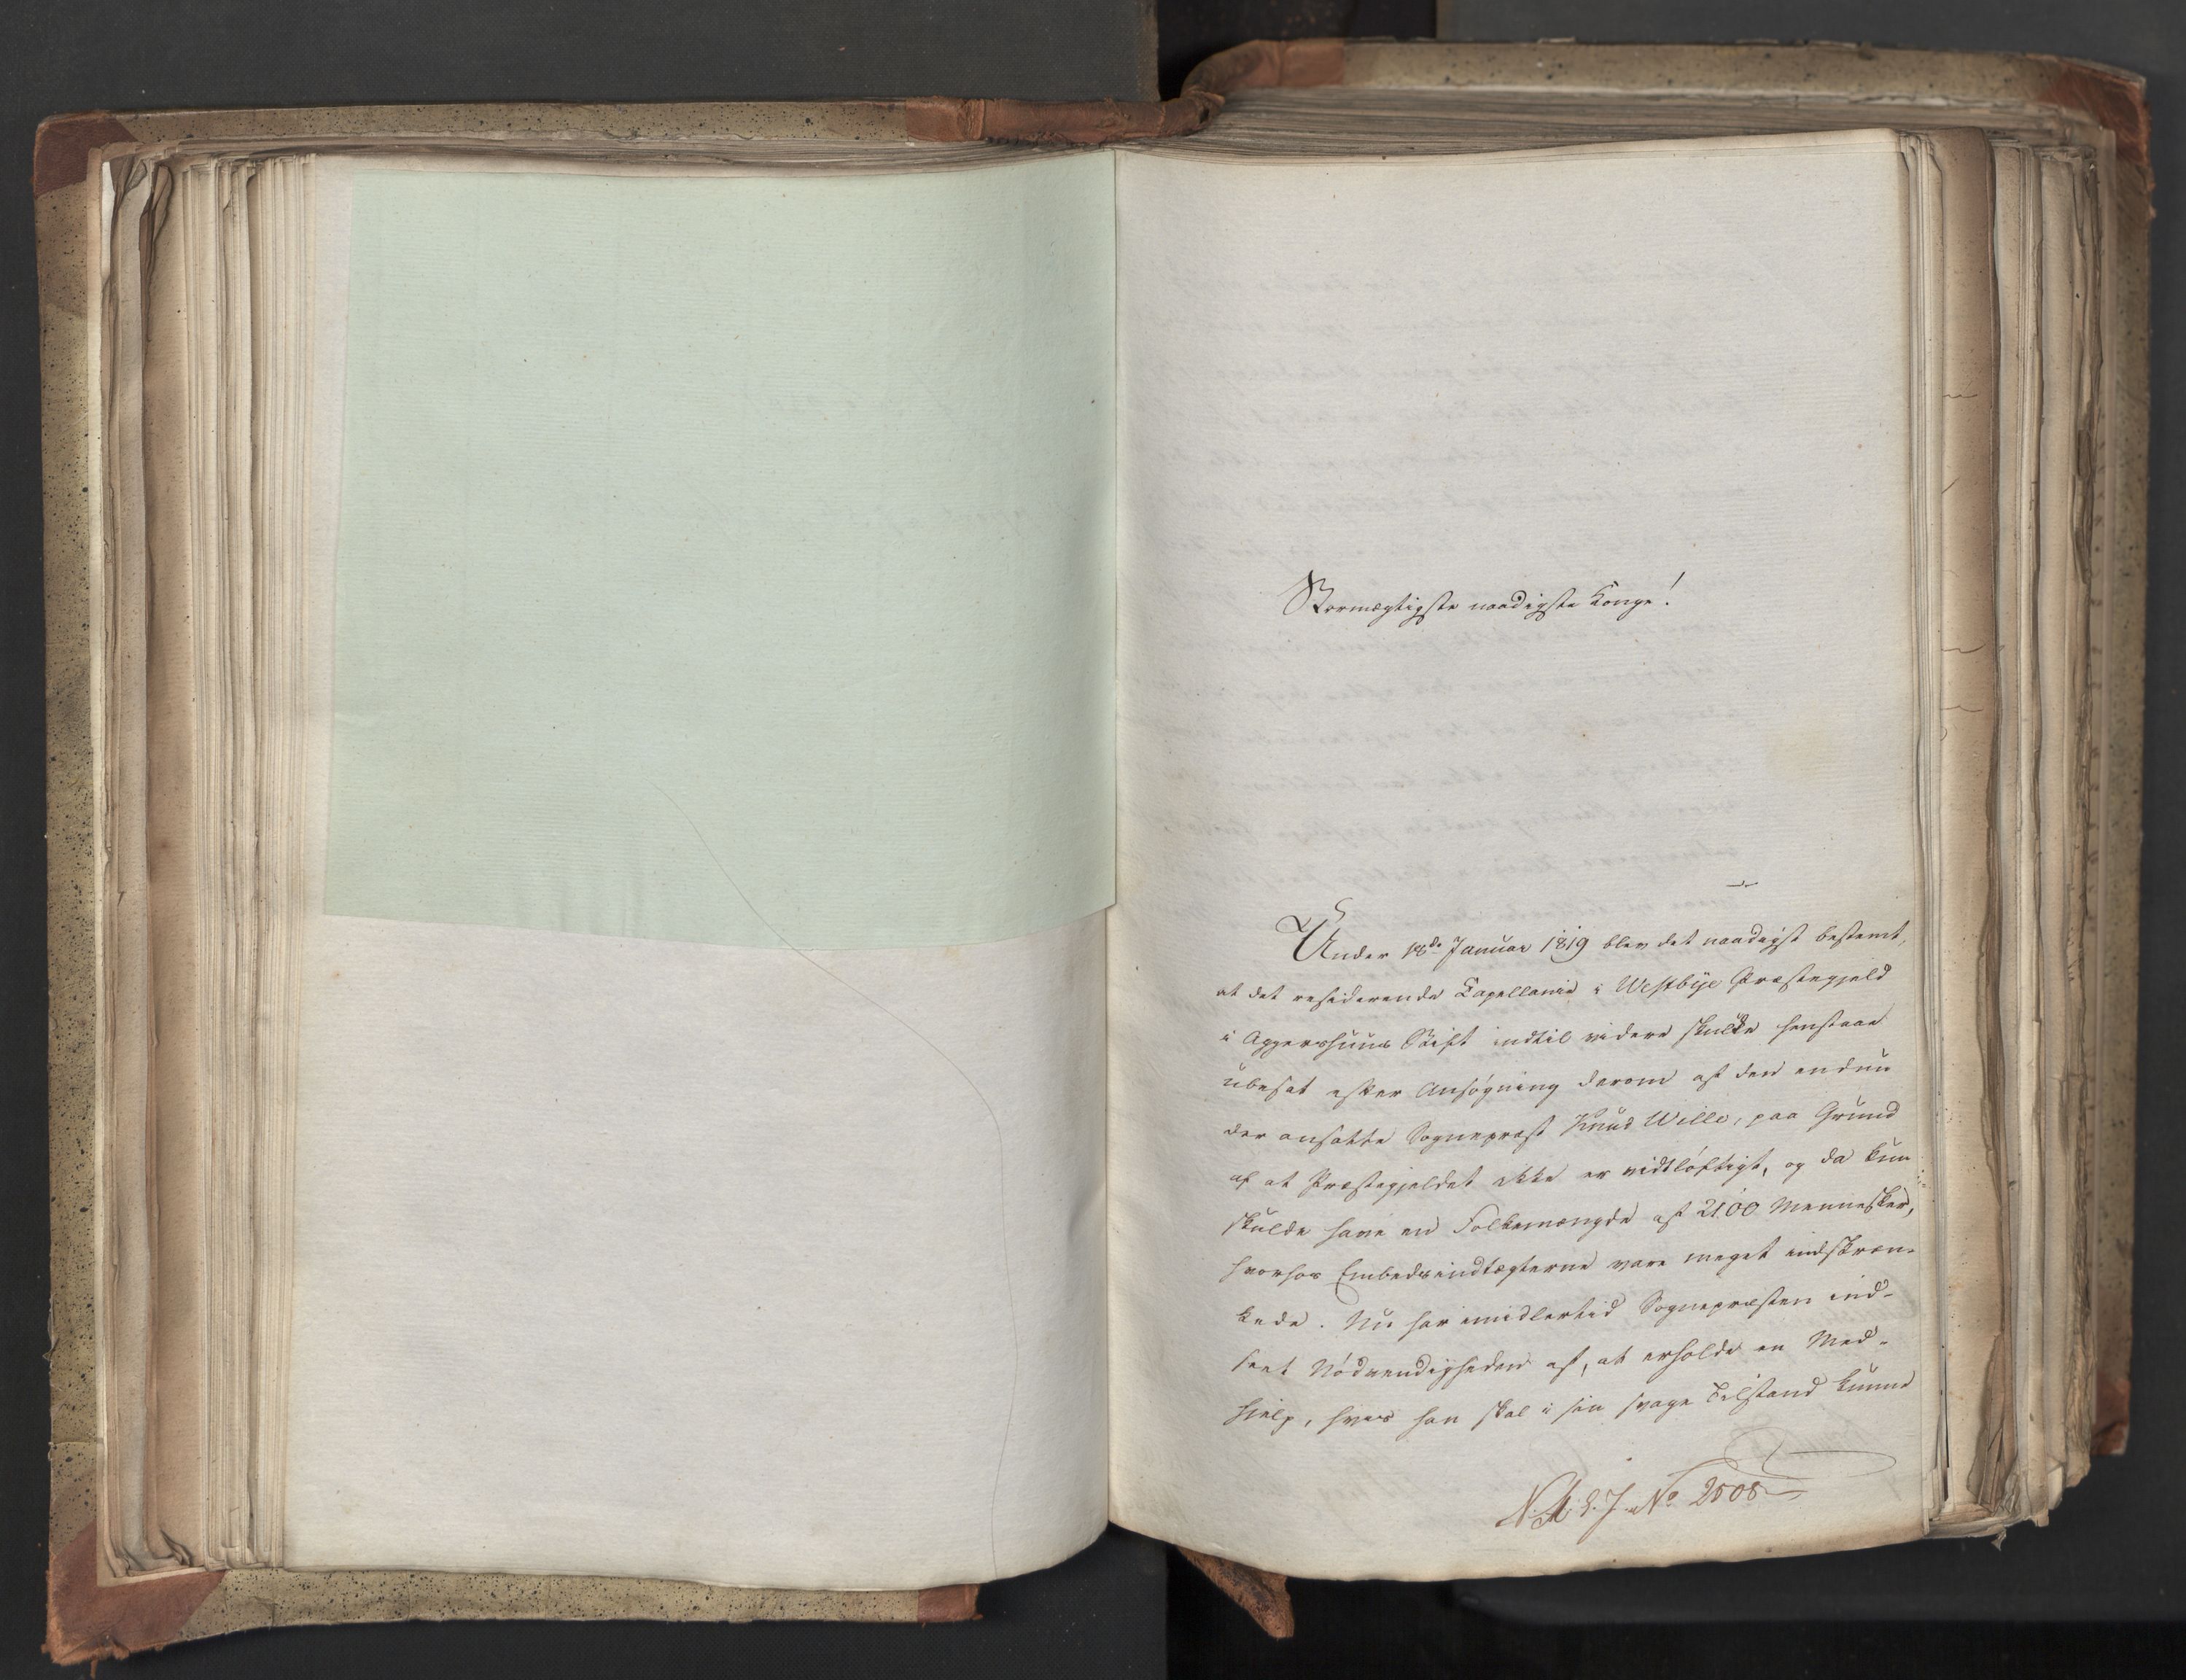 Stormægtigste naadigste Konge!
Under 18de Januar 1819 blev det naadigst bestemt,
at det residerende Capellanie i Westbye Præstegjeld
i Aggershuus Stift indtil videre skulde henstaae
ubesat efter Ansøgning derom af den endnu
der ansatte Sognepræst Knud Wille, paa Grund
af at Præstegjeldet ikke er vidtløftigt, og da kun
skulde have en Folkemængde af 2100 Mennesker,
hvorhos Embedsindtægterne vare meget indskræn-
kede. Nu har imidlertid Sognepræsten ind-
seet Nødvendigheden af, at erholde en Med-
hjelp, hvis han skal i sin svage Tilstand kunne
No 2508